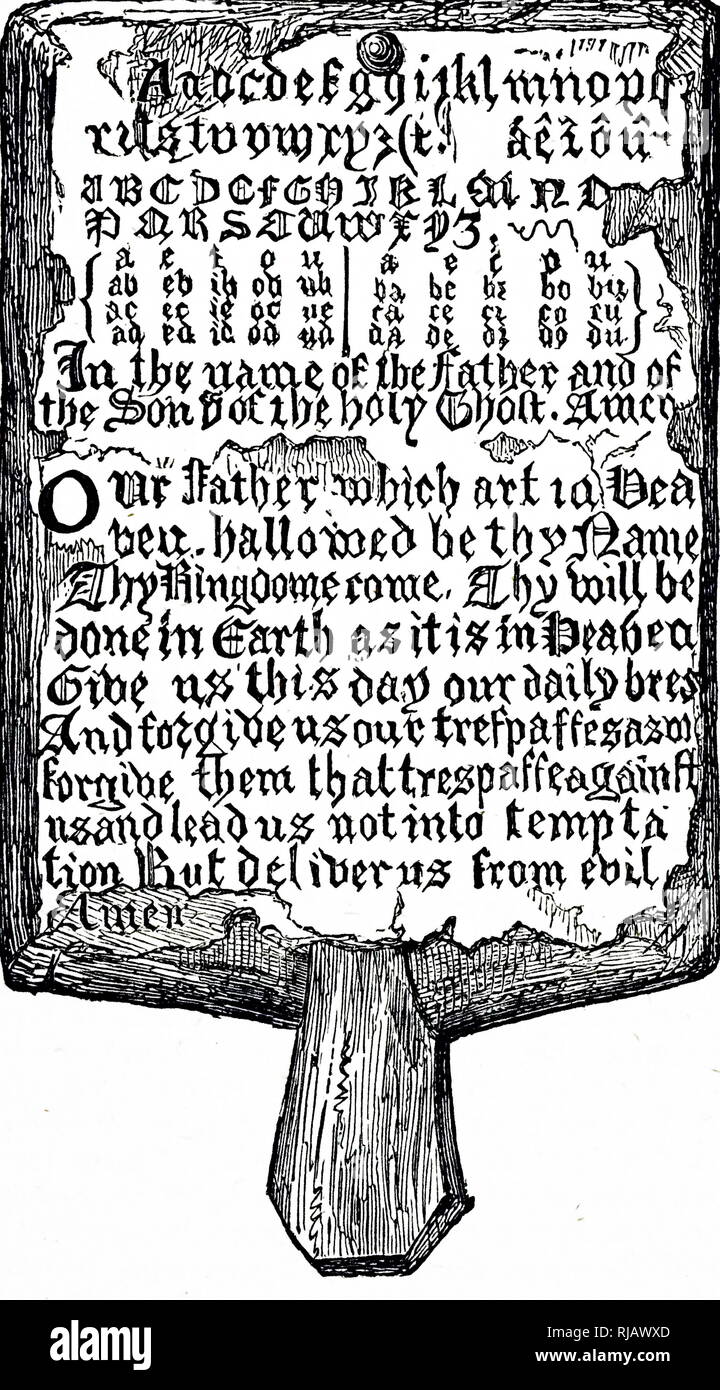 Aabcdefghijklmnopq
rsstuvwxyz &. âêîôû
ABCDEFGHIJKLMNO
PQRSTUWXYZ.
a e i o u | a e i o u
ab eb ib ob ub | ba be bi bo bu
ac ec ic oc uc | ca ce ci co cu
ad ed id od ud | da de di do du
In the name of the Father and of
the Son & of the holy Ghost. Amen
Our Father which art in Hea
ven. hallowed be thy Name
Thy Kingdome come. Thy will be
done in Earth as it is in Heaven
Give us this day our daily bre
And forgive us our trespasses as w
forgive them that trespasse against
us and lead us not into tempta
tion But deliver us from evil
Amen
alamy
Image ID: RJAWXD
www.alamy.com